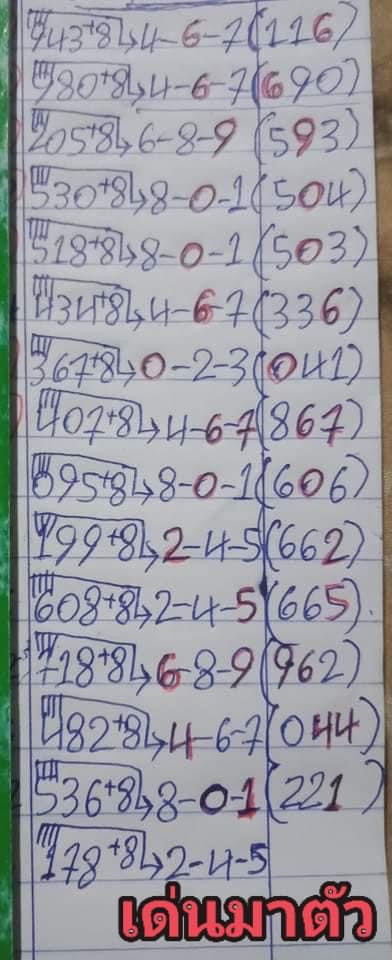 943+8↳4-6-7(116)
980+8↳4-6-7(690)
205+8↳6-8-9(593)
530+8↳8-0-1(504)
518+8↳8-0-1(503)
434+8↳4-6-7(336)
367+8↳0-2-3(041)
407+8↳4-6-7(867)
695+8↳8-0-1(606)
199+8↳2-4-5(662)
608+8↳2-4-5(665)
718+8↳6-8-9(962)
482+8↳4-6-7(044)
536+8↳8-0-1(221)
178+8↳2-4-5
เด่นมาตัว